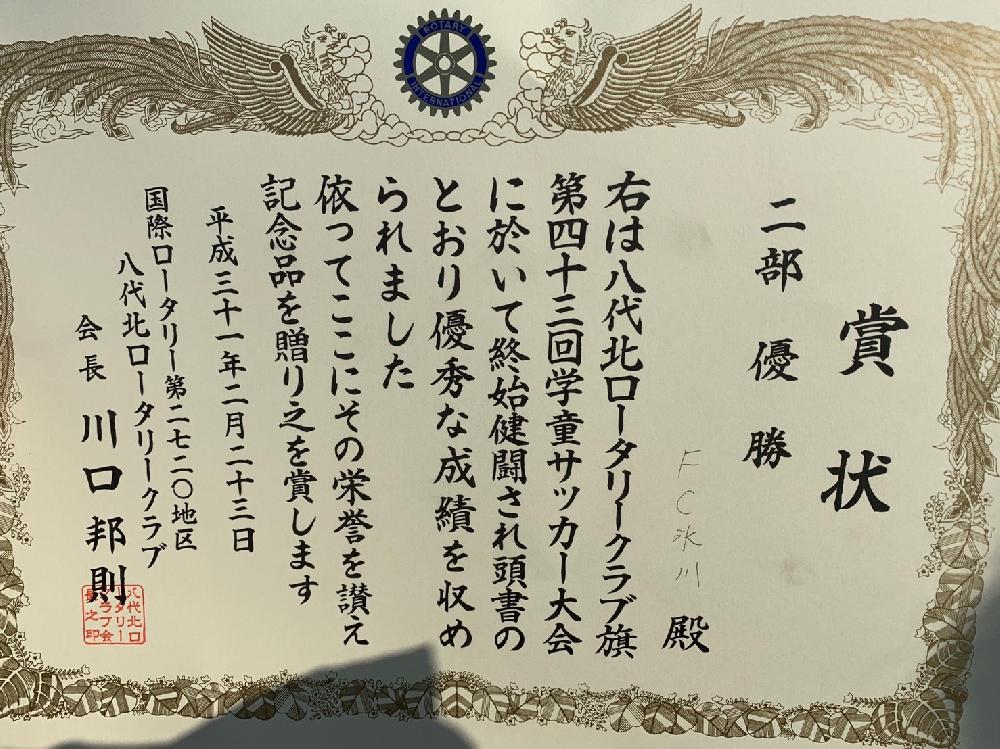 ROTARY
INTERNATIONAL
賞状
二部 優勝
FC氷川 殿
右は八代北ロータリークラブ旗
第四十三回学童サッカー大会
に於いて終始健闘され頭書の
とおり優秀な成績を収め
られました
依ってここにその栄誉を讃え
記念品を贈り之を賞します
平成三十一年二月二十三日
国際ロータリー第二七二〇地区
八代北ロータリークラブ
会長 川口邦則
八代北口
ータリー
クラブ会
長之印